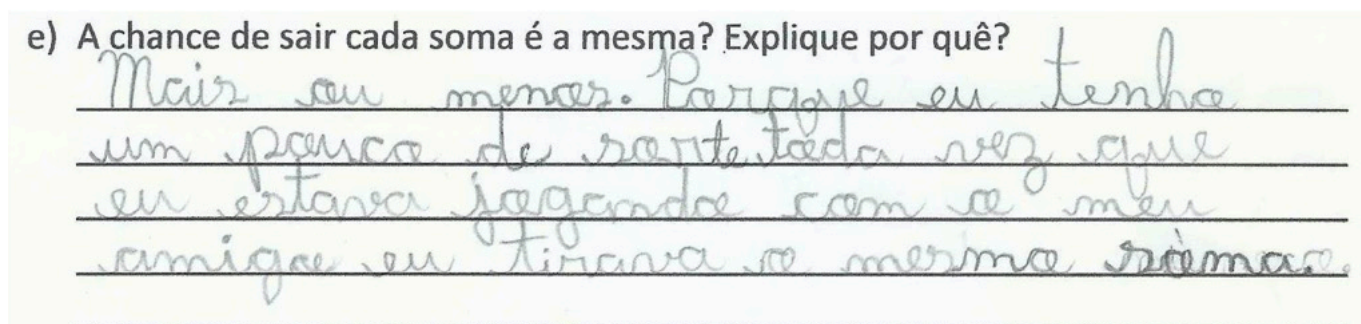 e) A chance de sair cada soma é a mesma? Explique por quê?
Mais ou menos. Porque eu tenho
um pouco de sorte toda vez que
eu estava jogando com o meu
amigo eu tirava o mesmo soma.